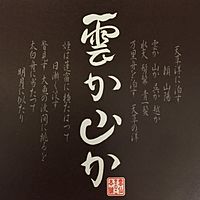 天草洋に泊す
頼 山陽
雲か 山か 呉か 越か
水天 髣髴 青一髪
万里舟を泊す 天草の洋
雲か山か
烟は篷窓に横たはつて
日漸く没す
瞥見す 大魚の波間に跳るを
太白舟に当たつて
明月に似たり